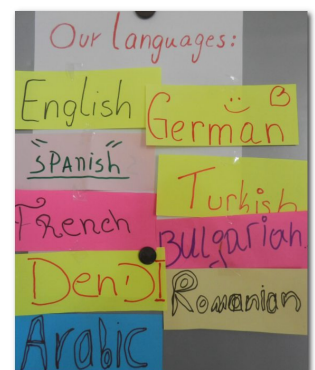 Our languages:
English
German
SPANish
Turkish
French
Bulgarian
DenDI
Romanian
Arabic